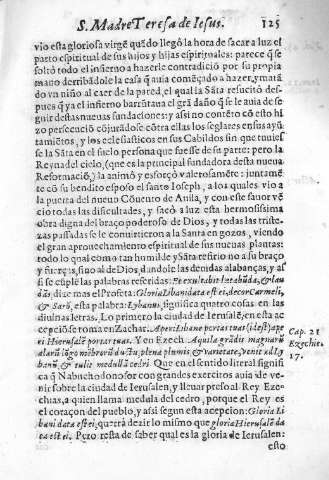 S. Madre Teresa de Iesus. 125
vio esta gloriosa virgẽ quãdo llegó la hora de sacar a luz el
parto espiritual de sus hijos y hijas espirituales: parece q̃ se
soltó todo el infierno a hazerle contradiciõ por su propia
mano derribãdole la casa q̃ auia começado a hazer, y matã
do vn niño al caer de la pared, el qual la Sãta resucitó des-
pues q̃ ya el infierno barrũtaua el grã daño q̃ se le auia de se-
guir destas nueuas fundaciones: y assi no contẽto cõ esto hi
zo persecuciõ cõjurãdose cõtra ellas los seglares en sus ayũ
tamiẽtos, y los eclesiasticos en sus Cabildos sin que tuuies
se la Sãta en el suelo persona que fuesse de su parte: pero la
Reyna del cielo, (que es la principal fundadora desta nueua
Reformaciõ,) la animó y esforçò valerosamẽte: juntamẽ
te cõ su bendito esposo el santo Ioseph, a los quales vio a
la puerta del nueuo Cõuento de Auila, y con este fauor vẽ
cio todas las dificultades, y sacò a luz esta hermosissima
obra digna del braço poderoso de Dios, y todas las triste-
zas passadas se le conuirtieron a la Santa en gozos, viendo
el gran aprouechamiento espiritual de sus nueuas plantas:
todo lo qual como tan humilde y Sãta refirio no a su braço
y fuerças, sino al de Dios, dandole las deuidas alabanças, y as
si se cũple las palabras referidas: Et exultabit lætabũda, & lau
dãs, dize mas el Profeta: Gloria Libani data est ei, decor Carmeli,
& Sarõ, esta palabra: Lybanus, significa quatro cosas en las
diuinas letras. Lo primero la ciudad de Ierusalẽ, en esta ac
cepciõ se toma en Zachar. Aperi Libane portas tuas (id est) ape
ri Hierusalẽ portas tuas. Y en Ezech. Aquila grãdis magnarũ
alarũ lõgo mẽbrorũ ductu, plena plumis & varietate, venit ad Ly
banũ, & tulit medullã cedri. Que en el sentido literal signifi
ca q̃ Nabuchodonosor con grandes exercitos auia de ve-
nir sobre la ciudad de Ierusalen, y lleuar preso al Rey Eze
chias, a quien llama medula del cedro, porque el Rey es
el coraçon del pueblo, y assi segun esta acepcion: Gloria Li
bani data est ei, querrá dezir lo mismo que gloria Hierusalẽ da
ta est ei. Pero resta de saber qual es la gloria de Ierusalen:
esto
Cap. 21
Ezechie.
17.